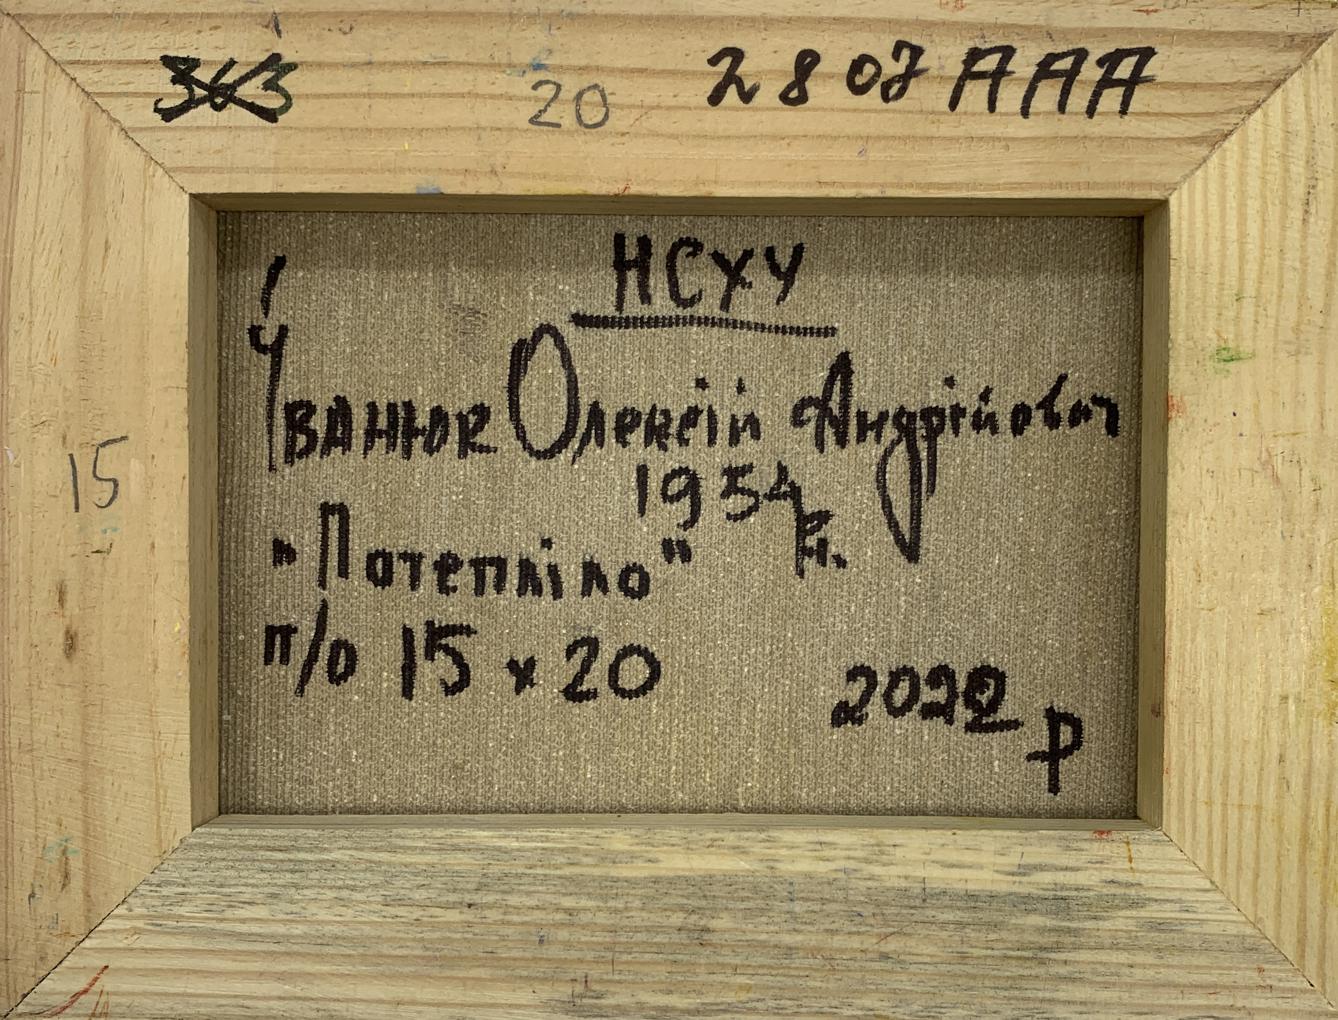 363 20 2807 ААА
НСХУ
Іванюк Олексій Андрійович
15
1954
р.н.
"Потепліло"
п/о 15 х 20
2022 р